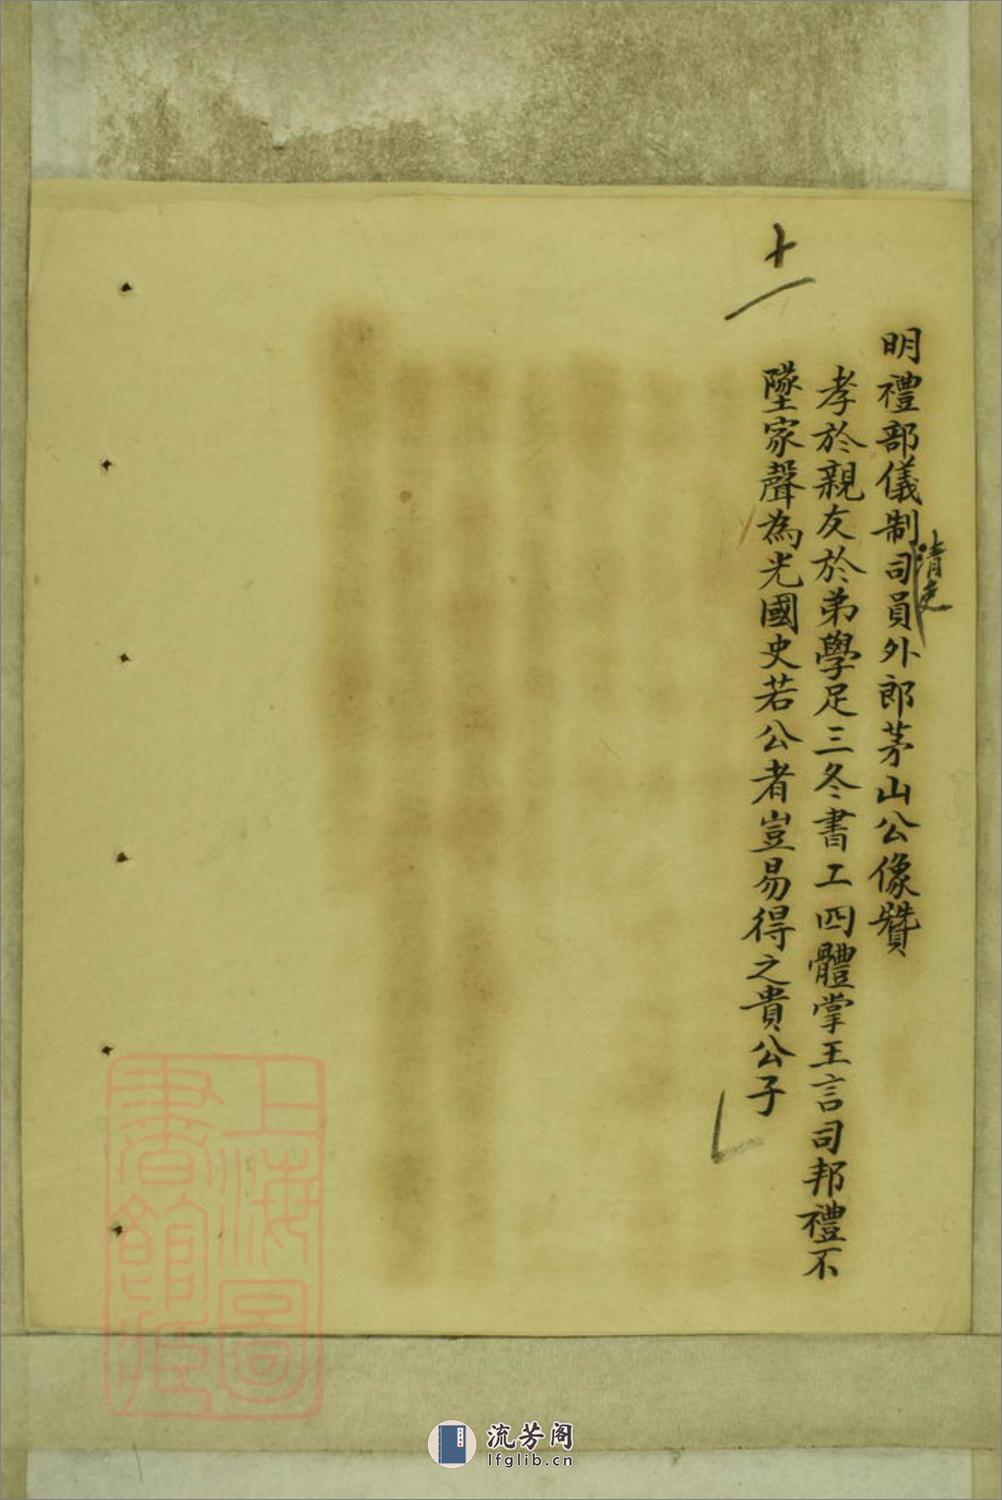 十一
明禮部儀制清吏司員外郎茅山公像贊
孝於親友於弟學足三冬書工四體掌王言司邦禮不
墜家聲為光國史若公者豈易得之貴公子
上海圖
書館藏
流芳阁
lfglib.cn